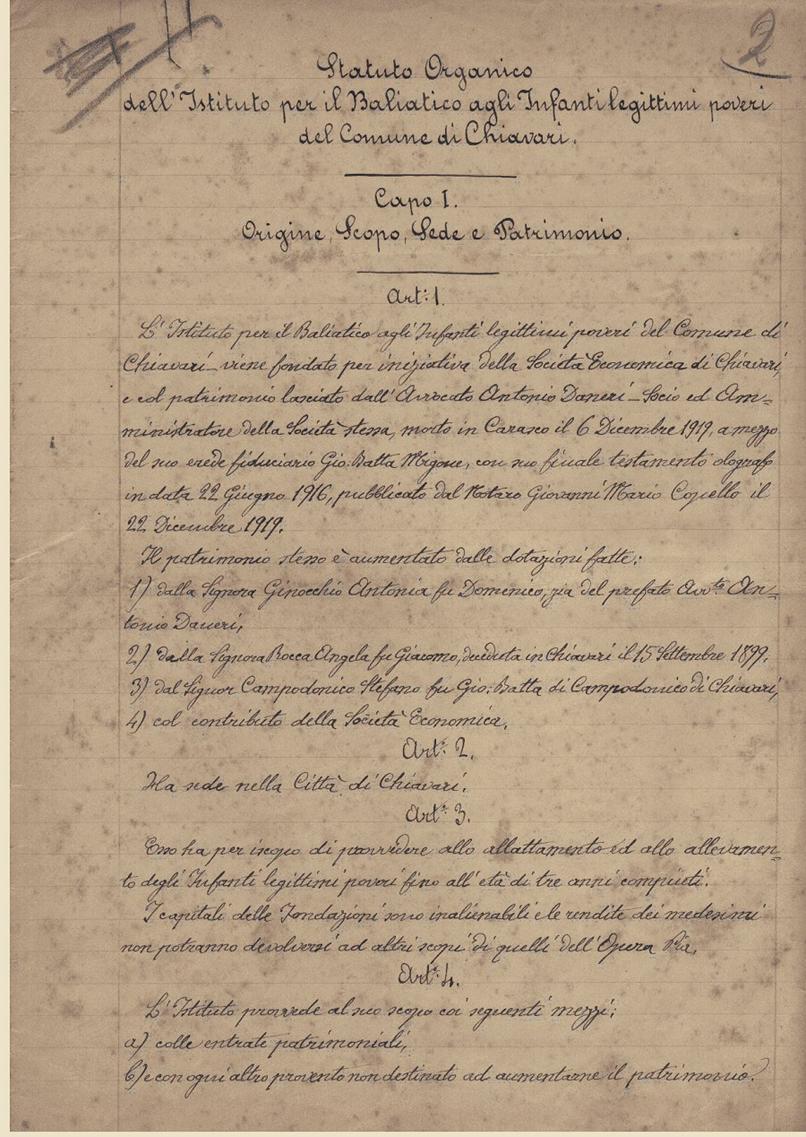 2
Statuto Organico
dell'Istituto per il Baliatico agli Infanti legittimi poveri
del Comune di Chiavari.
Capo I.
Origine, Scopo, Sede e Patrimonio.
Art: 1.
L'Istituto per il Baliatico agli Infanti legittimi poveri del Comune di
Chiavari viene fondato per iniziativa della Società Economica di Chiavari,
e col patrimonio lasciato dall'Avvocato Antonio Daneri - Socio ed Am=
ministratore della Società stessa, morto in Carasco il 6 Dicembre 1919, a mezzo
del suo erede fiduciario Gio: Batta Migone, con suo finale testamento olografo
in data 22 Giugno 1916, pubblicato dal Notaro Giovanni Mario Copello il
22 Dicembre 1919.
Il patrimonio stesso è aumentato dalle dotazioni fatte:
1) dalla Signora Ginocchio Antonia fu Domenico, zia del prefato Avv:to An=
tonio Daneri,
2) dalla Signora Rocca Angela fu Giacomo, deceduta in Chiavari il 15 Settembre 1899.
3) dal Signor Campodonico Stefano fu Gio: Batta di Campodonico di Chiavari,
4) col contributo della Società Economica.
Art: 2.
Ha sede nella Città di Chiavari.
Art: 3.
Esso ha per iscopo di provvedere allo allattamento ed allo allevamen=
to degli Infanti legittimi poveri fino all'età di tre anni compiuti.
I capitali delle Fondazioni sono inalienabili e le rendite dei medesimi
non potranno devolversi ad altri scopi di quelli dell'Opera Pia.
Art: 4.
L'Istituto provvede al suo scopo coi seguenti mezzi:
a) colle entrate patrimoniali,
b) e con ogni altro provento non destinato ad aumentarne il patrimonio.